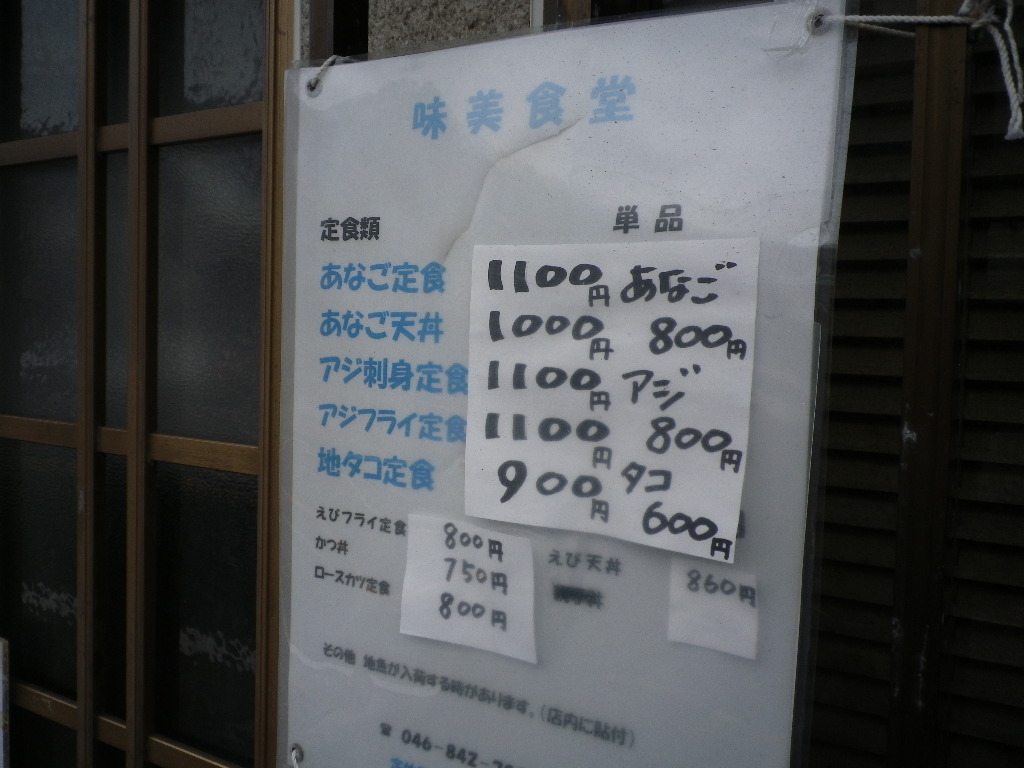 味美食堂
定食類 単品
あなご定食 1100円 あなご
あなご天丼 1000円 800円
アジ刺身定食 1100円 アジ
アジフライ定食 1100円 800円
地タコ定食 900円 タコ
600円
えびフライ定食 800円 えび天丼 860円
かつ丼 750円
ロースカツ定食 800円
その他 地魚が入荷する時があります。(店内に貼付)
☎ 046-842-